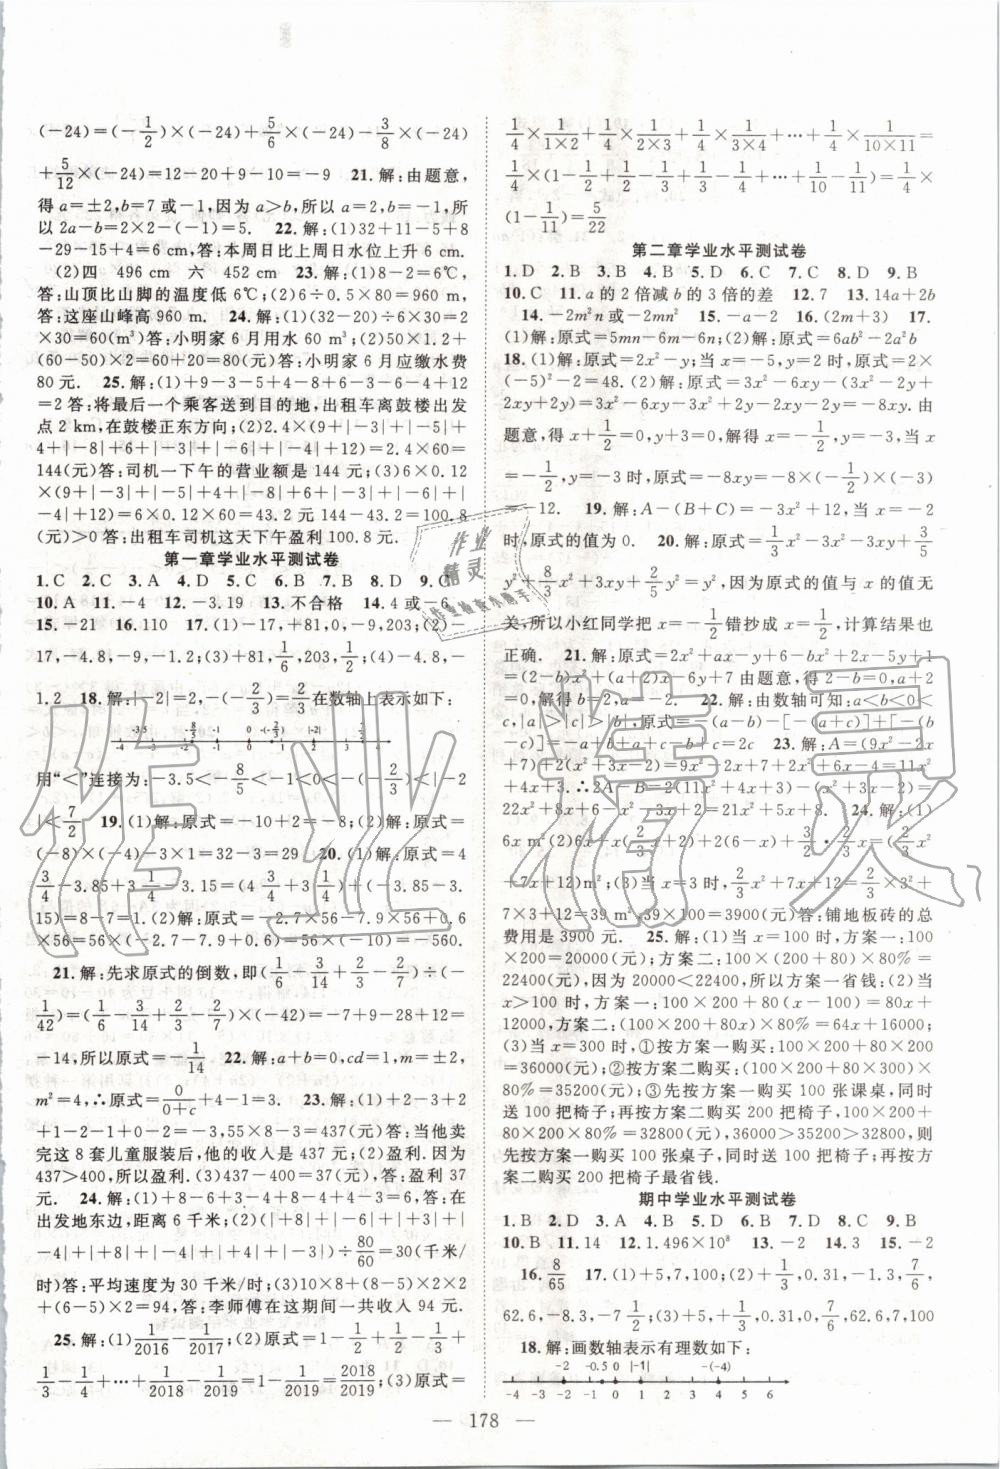 (-24)=(-1/2)×(-24)+5/6×(-24)-3/8×(-24)
+5/12×(-24)=12-20+9-10=-9　21.解:由题意,
得a=±2,b=7或-1,因为a>b,所以a=2,b=-1,所
以2a-b=2×2-(-1)=5.　22.解:(1)32+41-9-5+8
-29-15+4=6 cm.答:本周日比上周日水位上升6 cm.
(2)四　496 cm　六　452 cm　23.解:(1)8-2=6℃,
答:山顶比山脚的温度低6℃;(2)6÷0.5×80=960 m.
答:这座山峰高960 m.　24.解:(1)(32-20)÷6×30=2
×30=60(m³)答:小明家6月用水60 m³;(2)50×1.2+
(60-50)×2=60+20=80(元)答:小明家6月应缴水费
80元.　25.解:(1)+9-3-5+4-8+6-3-6-4+12
=2答:将最后一个乘客送到目的地,出租车离鼓楼出发
点2 km,在鼓楼正东方向;(2)2.4×(9+|-3|+|-5|+
144(元)答:司机一下午的营业额是144元;(3)6×0.12
×(9+|-3|+|-5|+4+|-8|+6+|-3|+|-6|+|
-4|+12)=6×0.12×60=43.2元 144-43.2=100.8
(元)>0答:出租车司机这天下午盈利100.8元.
第一章学业水平测试卷
1.C　2.C　3.A　4.D　5.C　6.B　7.B　8.D　9.C
10.A　11.-4　12.-3.19　13.不合格　14.4或-6
15.-21　16.110　17.(1)-17,+81,0,-9,203;(2)-
17,-4.8,-9,-1.2;(3)+81,1/6,203,1/4;(4)-4.8,-
1.2　18.解:|-2|=2,-(-2/3)=2/3在数轴上表示如下:
用“<”连接为:-3.5<-8/5<-1<0<-(-2/3)<|-2
|<7/2　19.(1)解:原式=-10+2=-8;(2)解:原式=
(-8)×(-4)-3×1=32-3=29　20.(1)解:原式=4
3/4-3.85+3 1/4-3.15=(4 3/4+3 1/4)-(3.85+3.
15)=8-7=1.(2)原式=-2.7×56-7.9×56+0.6
×56=56×(-2.7-7.9+0.6)=56×(-10)=-560.
21.解:先求原式的倒数,即(1/6-3/14+2/3-2/7)÷(-
1/42)=(1/6-3/14+2/3-2/7)×(-42)=-7+9-28+12=
-14,所以原式=-1/14　22.解:a+b=0,cd=1,m=±2,
m²=4,∴原式=0/(0+c)+4-1=3　23.解:(1)+2-3+2
+1-2-1+0-2=-3,55×8-3=437(元)答:当他卖
完这8套儿童服装后,他的收入是437元;(2)盈利.因为
437>400,所以盈利.(3)437-400=37(元)答:盈利37
元.　24.解:(1)+8-6+3-4+8-4+4-3=6答:在
出发地东边,距离6千米;(2)(|+8|+|-6|+|+3|+|
-4|+|+8|+|-4|+|+4|+|-3|)÷80/60=30(千米/
时)答:平均速度为30千米/时;(3)10×8+(8-5)×2×2
+(6-5)×2=94,答:李师傅在这期间一共收入94元.
25.解:(1)1/2016-1/2017;(2)原式=1-1/2+1/2-1/3+
1/3-1/4+…+1/2018-1/2019=1-1/2019=2018/2019;(3)原式=
1/4×1/(1×2)+1/4×1/(2×3)+1/4×1/(3×4)+…+1/4×1/(10×11)=
1/4(1-1/2+1/2-1/3+1/3-1/4+…+1/10-1/11)=1/4
×(1-1/11)=5/22
第二章学业水平测试卷
1.D　2.B　3.B　4.B　5.D　6.C　7.C　8.D　9.B
10.C　11.a的2倍减b的3倍的差　12.7　13.14a+2b
14.-2m²n或-2mn²　15.-a-2　16.(2m+3)　17.
(1)解:原式=5mn-6m-6n;(2)解:原式=6ab²-a²b
18.(1)解:原式=2x²-y;当x=-5,y=2时,原式=2×
(-5)²-2=48.(2)解:原式=3x²-6xy-(3x²-2y+
2xy+2y)=3x²-6xy-3x²+2y-2xy-2y=-8xy.由
题意,得x+1/2=0,y+3=0,解得x=-1/2,y=-3.当x
=-1/2,y=-3时,原式=-8xy=-8×(-1/2)×(-3)
=-12.　19.解:A-(B+C)=-3x²+12x,当x=4
时,原式的值为0.　20.解:原式=3/5x²-3x²-3/5y+3/5
y²+8/3x²+3/5y+2/5y²-1/3x²+x²=y²,因为原式的值与x的值无
关,所以小红同学把x=-1/2错抄成x=1/2,计算结果也
正确.　21.解:原式=2x²+ax-y+6-2bx²+3x-5y+1
=(2-b)x²+(a+3)x-6y+7由题意,得2-b=0,a+3
=0,解得b=2,a=-3　22.解:由数轴可知:a<b<0<
c,|a|>|c|>|b|,原式=-(a-b)-[-(a+c)]+(c-b
x+7)+(2x²+4x+4)=11x²
+4x+3.∴2A-B=2(11x²+4x+3)-(x²+3x-2)=
22x²+8x+6-x²-3x+2=21x²+5x+8.　24.解:(1)
+7x+12)m²;(3)当x=3时,2/3x²+7x+12=2/3×3²+
7×3+12=39 m²,39×100=3900(元)答:铺地板砖的总
费用是3900元.　25.解:(1)当x=100时,方案一:100
×200=20000(元);方案二:100×(200+80)×80%=
22400(元),因为20000<22400,所以方案一省钱;(2)当
x>100时,方案一:100×200+80(x-100)=80x+
12000,方案二:(100×200+80x)×80%=64x+16000;
(3)当x=300时,①按方案一购买:100×200+80×200
=36000(元);②按方案二购买:(100×200+80×300)×
80%=35200(元);③先按方案一购买100张课桌,同时
送100把椅子;再按方案二购买200把椅子:100×200+
80×200×80%=32800(元),36000>35200>32800,则
先按方案一购买100张桌子,同时送100把椅子;再按方
案二购买200把椅子最省钱.
期中学业水平测试卷
1.B　2.D　3.A　4.B　5.A　6.D　7.D　8.C　9.B
10.B　11.14　12.1.496×10⁸　13.-4　14.3　15.-2
16.8/65　17.(1)+5,100;(2)+1/3,0.31,-1.3,7/6,
62.6,-8.3,-7 1/2;(3)+5,+1/3,0.31,0,7/6,62.6,100
18.解:画数轴表示有理数如下:
-2　-0.5　0　|-1|　-(-4)
-4　-3　-2　-1　0　1　2　3　4　5　6
— 178 —
作业精灵